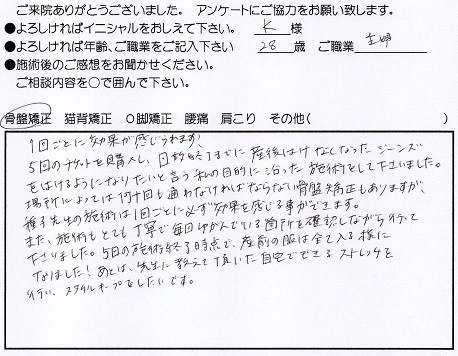 ご来院ありがとうございました。 アンケートにご協力をお願い致します。
●よろしければイニシャルをおしえて下さい。 K 様
●よろしければ年齢、ご職業をご記入下さい 28 歳 ご職業 主婦
●施術後のご感想をお聞かせください。
ご相談内容を○で囲んで下さい。
骨盤矯正 猫背矯正 O脚矯正 腰痛 肩こり その他( )
1回ごとに効果が感じられます、
5回のチケットを購入し、回数終了までに産後はけなくなったジーンズ
をはけるようになりたいと言う私の目的に沿った施術をして下さいました。
場所によっては何十回も通わなければならない骨盤矯正もありますが、
種子先生の施術は1回ごとに必ず効果を感じる事ができます。
また、施術もとても丁寧で毎回ゆがんでいる箇所を確認しながら行って
下さりました。5回の施術終了時点で、産前の服は全て入る様に
なりました!あとは、先生に教えて頂いた自宅でできるストレッチを
行い、スタイルキープをしたいです。